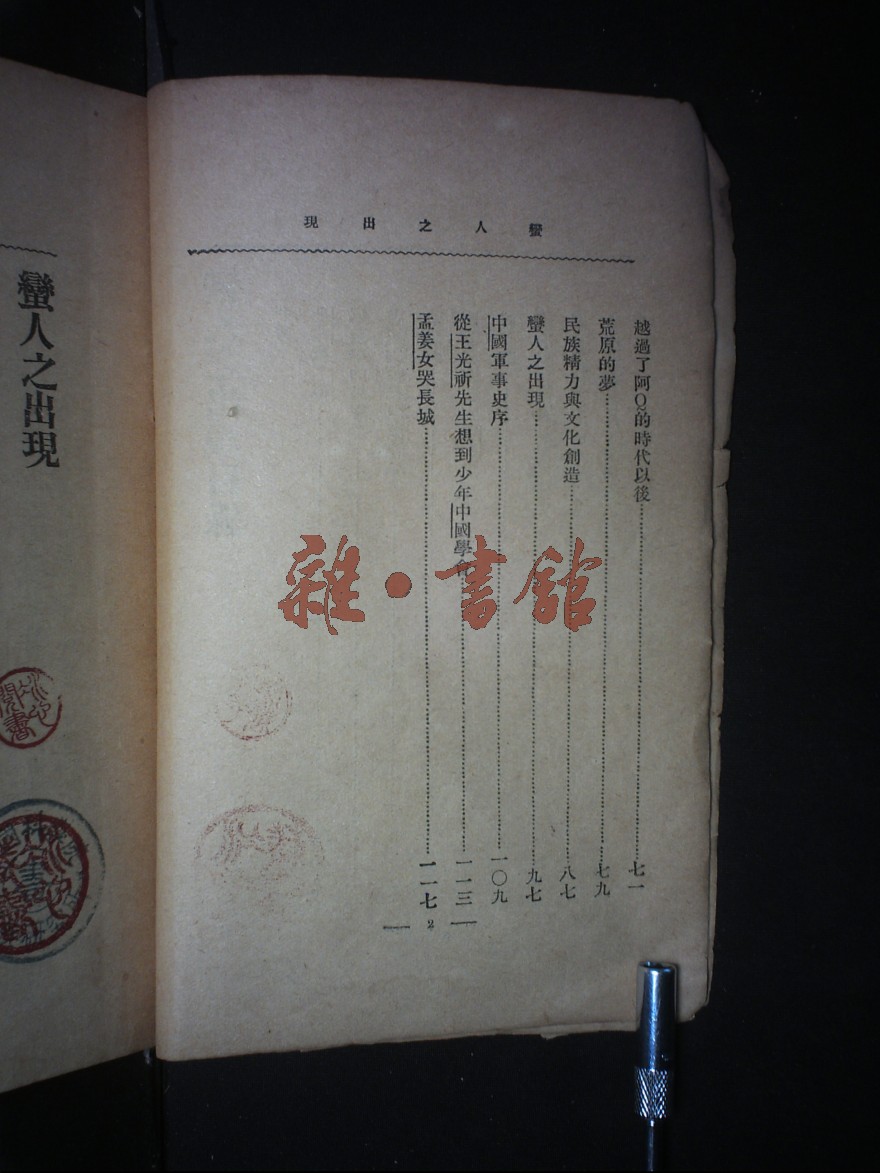 蠻人之出現
越過了阿Q的時代以後……七一
荒原的夢……七九
民族精力與文化創造……八七
蠻人之出現……九七
中國軍事史序……一〇九
從王光祈先生想到少年中國學會……一一三
孟姜女哭長城……一一七
2
蠻人之出現
雜·書館